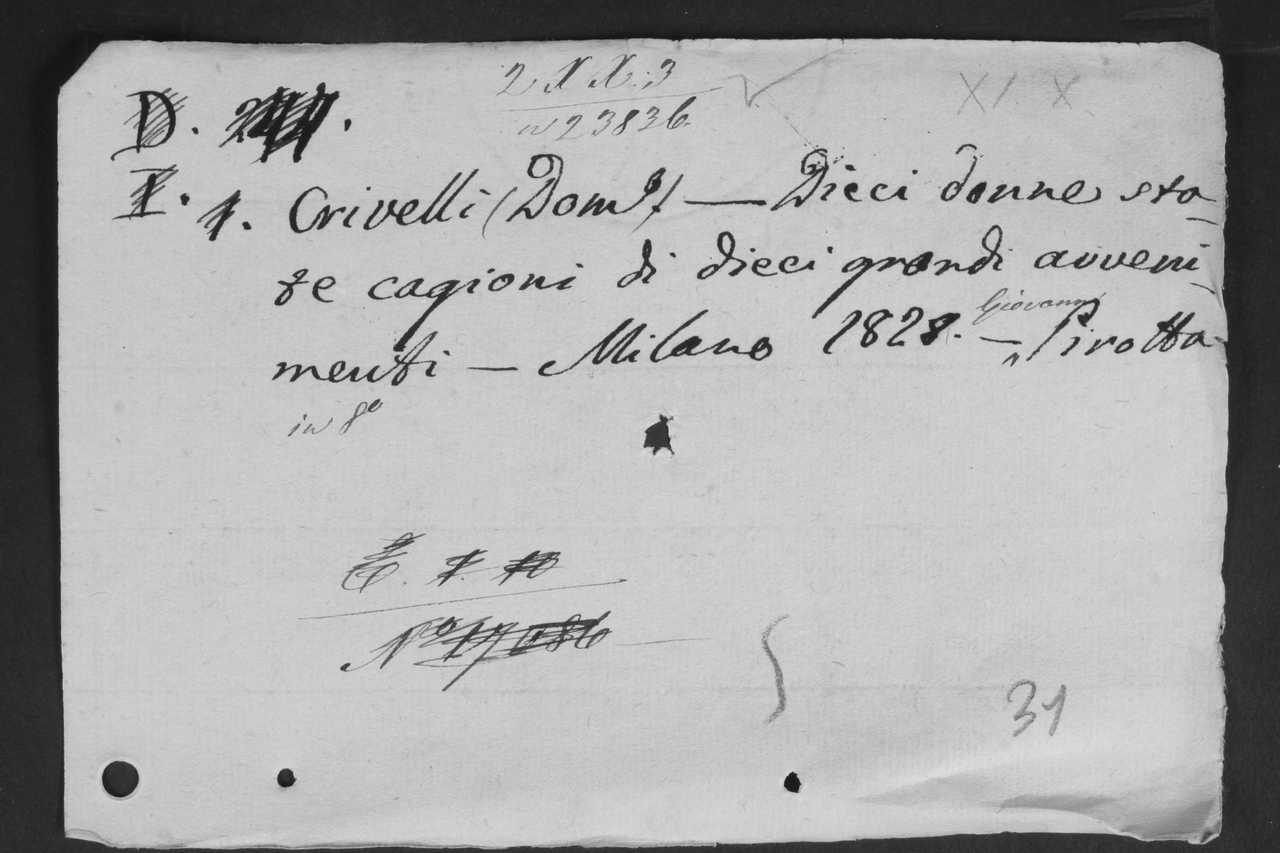 2 X X. 3
n 23836.
XIX
D.
I. 1. Crivelli (Dom.) — Dieci donne sta-
te cagioni di dieci grandi avveni-
menti — Milano 1828. — Giovanni Pirotta
in 8º
E. 1.
Nº 17086
31